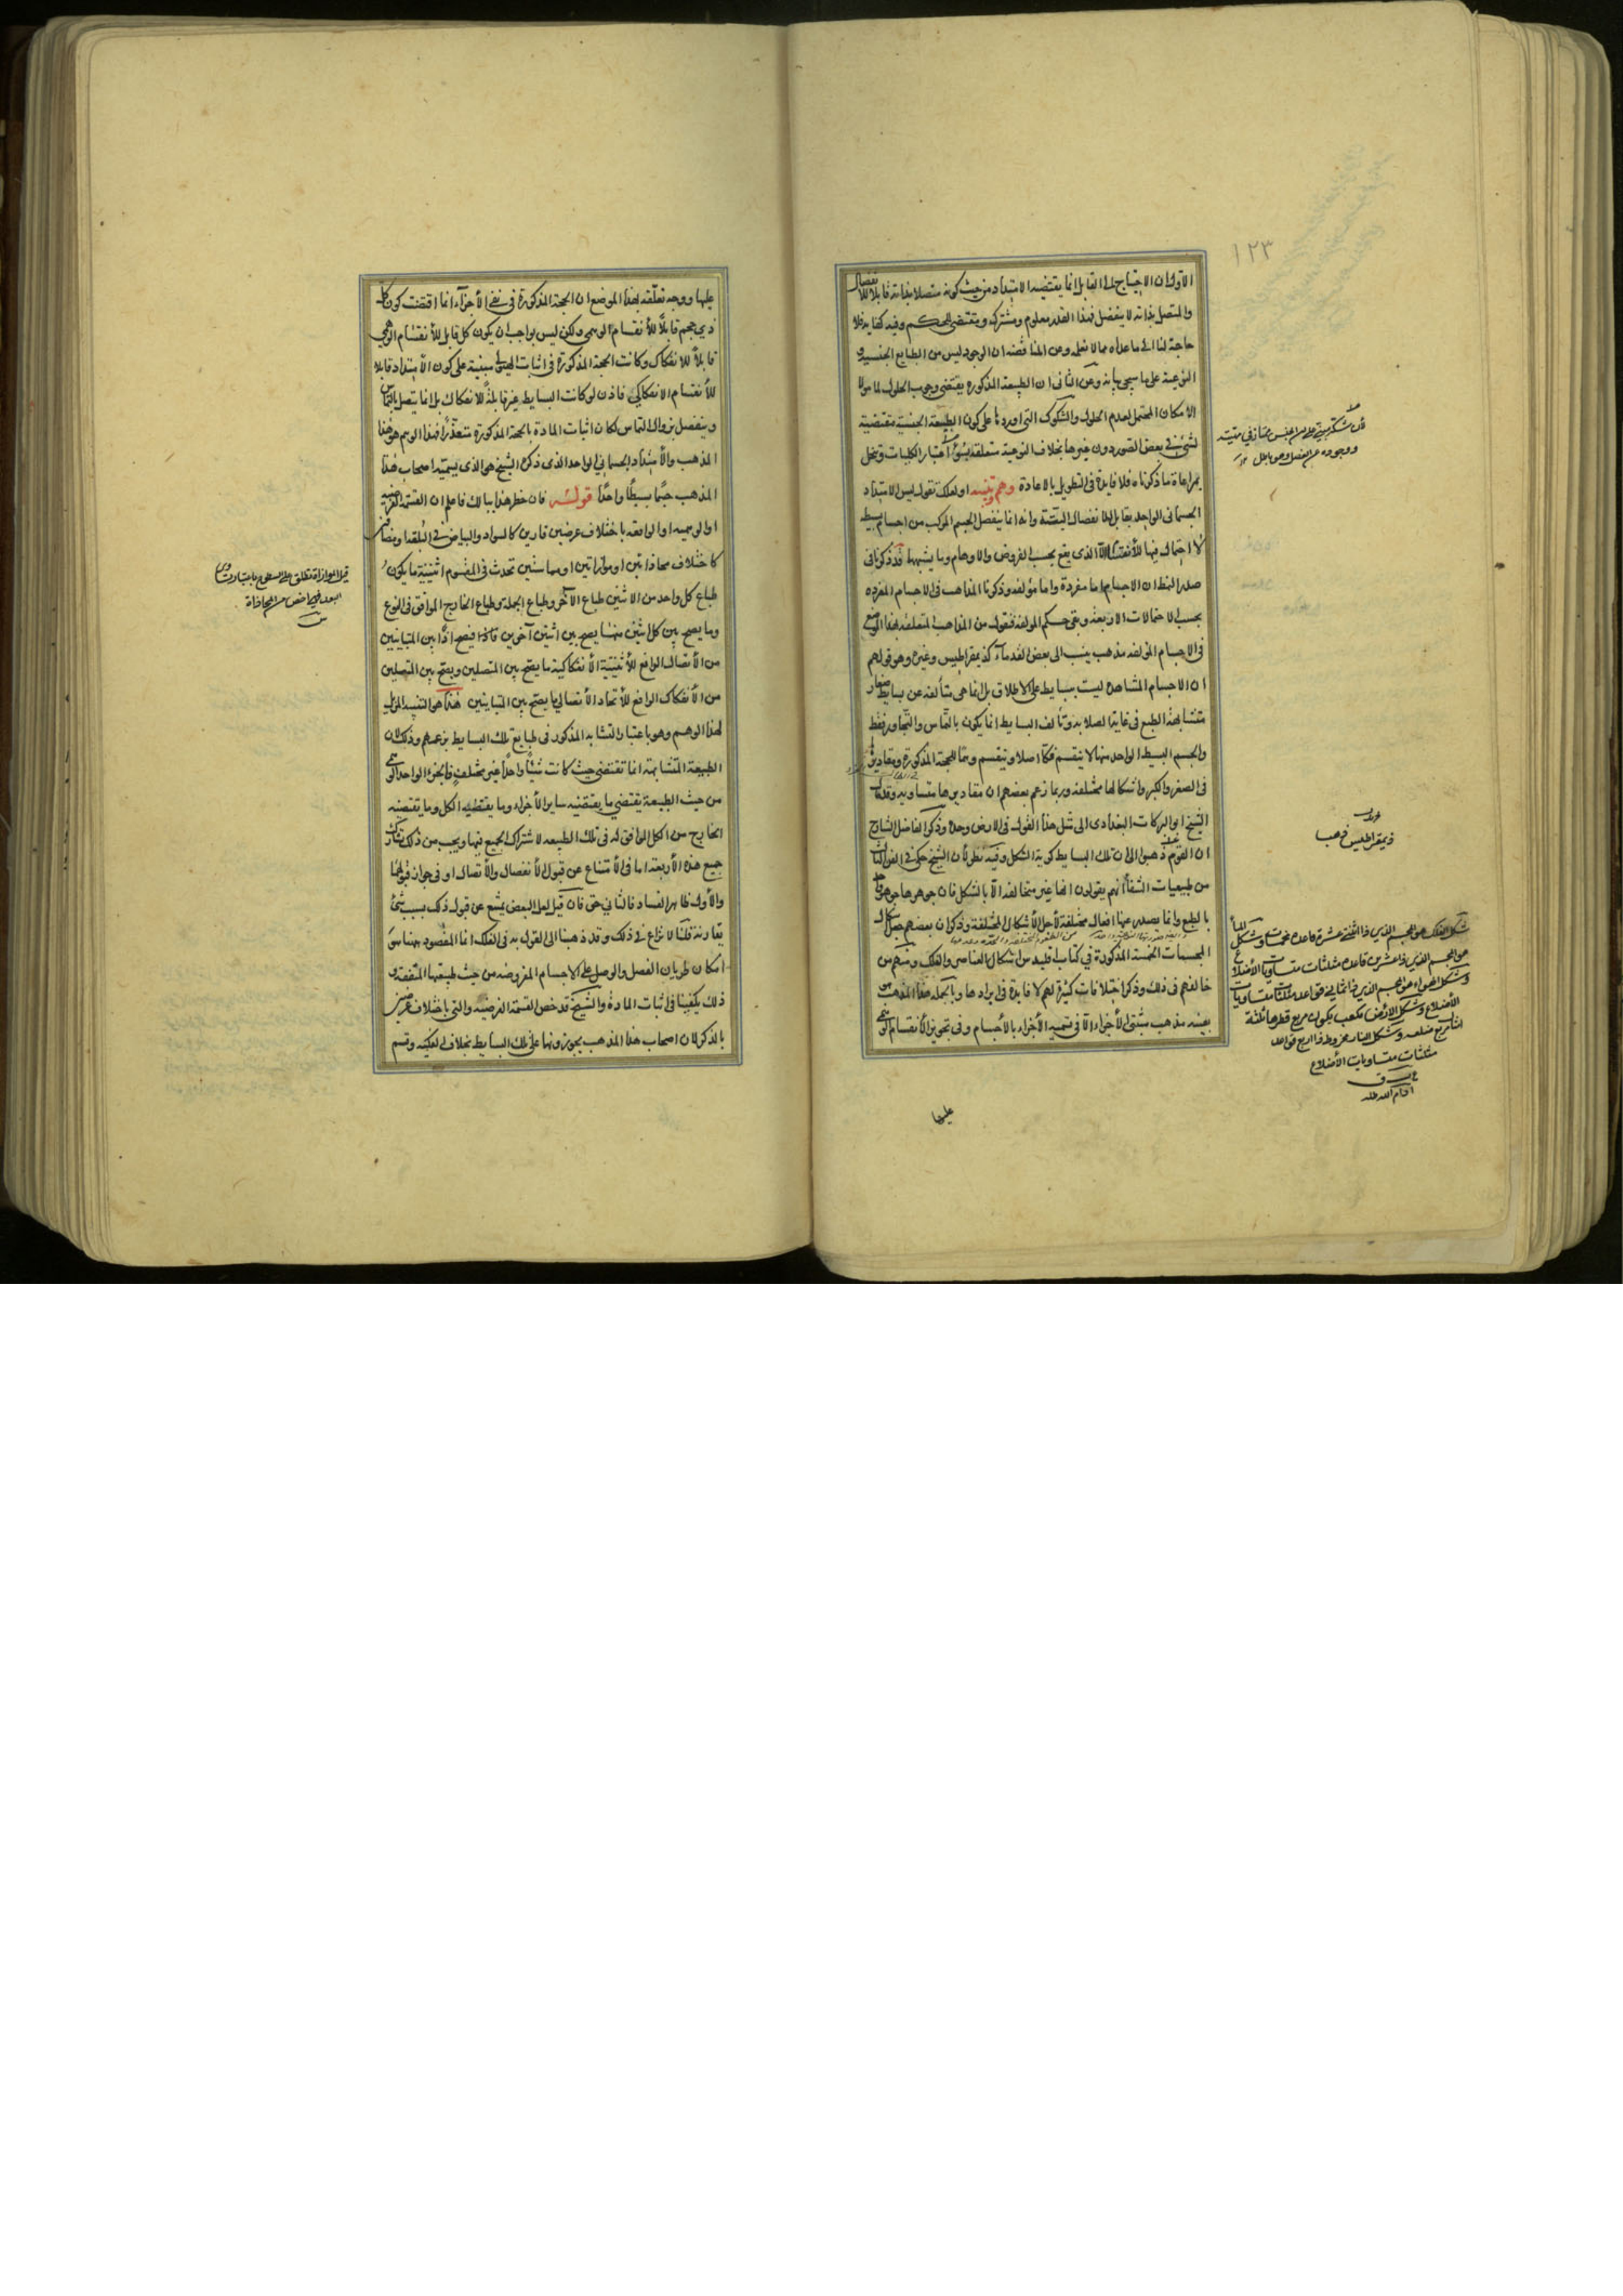 ١٢٣
الاول ان الاحتياج الى القابل انما يقتضيه الامتداد من حيث كونه متصلا بذاته قابلا للانفصال
والمتصل بذاته لا ينفصل فهذا القدر معلوم ومشترك ومقتضى للحكم وفيه كفاية فلا
حاجة لنا الى ما عداه مما لا نعلمه وعن المناقضة ان الوجود ليس من الطبايع الجنسية و
النوعية على ما سيجئ بيانه وعن الثانى ان الطبيعة المذكورة يقتضى وجوب الحلول لما مر لا
الامكان المحتمل لعدم الحلول والشكوك التى اوردها على كون الطبيعة الجنسية مقتضية
لشئ فى بعض الصور دون غيرها بخلاف النوعية متعلقة بسوء اعتبار الكليات وتنحل
بمراعاة ما ذكرناه فلا فايدة فى التطويل بالاعادة وهم وتنبيه او لعلك تقول ليس الامتداد
الجسمانى الواحد بقابل للانفصال البتة وانه انما ينفصل الجسم المركب من اجسام بسيطة
لا احتمال فيها للانقسام الا الذى يقع بحسب الفروض والاوهام وما يشبهها قد ذكرنا فى
صدر النمط ان الاجسام اما مفردة واما مؤلفة وذكرنا المذاهب فى الاجسام المفردة
بحسب الاحتمالات الاربعة وبقى حكم المؤلفة فنقول من المذاهب المتعلقة بهذا الموضع
فى الاجسام المؤلفة مذهب ينسب الى بعض القدماء كذيمقراطيس وغيره وهو قولهم
ان الاجسام المشاهدة ليست ببسايط على الاطلاق بل انما هى متألفة عن بسايط صغار
متشابهة الطبع فى غاية الصلابة وتألف البسايط انما يكون بالتماس والتجاور فقط
والجسم البسيط الواحد منها لا ينقسم فكا اصلا وينقسم وهما للحجة المذكورة ومقاديرها
فى الصغر والكبر واشكالها مختلفة وربما زعم بعضهم ان مقاديرها متساوية وقد مال
الشيخ ابو البركات البغدادى الى مثل هذا القول فى الارض وحده وذكر الفاضل الشارح
ان القوم ذهبوا الى ان تلك البسايط كرية الشكل وفيه نظر لان الشيخ حكى فى الفن الثالث
من طبيعيات الشفا انهم يقولون انها غير متخالفة الا بالشكل فان جوهرها جوهر واحد
بالطبع وانما يصدر عنها افعال مختلفة لاجل الاشكال المختلفة وذكر ان بعضهم جعل اشكال
المجسمات الخمسة المذكورة فى كتاب اقليدس اشكال العناصر والفلك ومنهم من
خالفهم فى ذلك وذكر اختلافات كثيرة لهم لا فايدة فى ايرادها وبالجملة هذا المذهب
بعينه مذهب مثبتى الاجزاء الا فى تسمية الاجزاء بالاجسام وفى تجويز الانقسام الوهمى
عليها
ووجوده عن الفصل وهو باطل
ذيمقراطيس ذهب
شكل الفلك هو الجسم الذى ذا اثنتى عشرة قاعدة مخمسات وشكل الماء
هو الجسم الذى ذا عشرين قاعدة مثلثات متساويات الاضلاع
وشكل الهواء هو الجسم الذى ذا ثمانى قواعد مثلثات متساويات
الاضلاع وشكل الارض مكعب يكون مربع قطرها ثلثة
امثال مربع ضلعه وشكل النار مخروط ذا اربع قواعد
مثلثات متساويات الاضلاع
ادام الله ظله
عليها ووجه تعلقه بهذا الموضع ان الحجة المذكورة فى نفى الاجزاء انما اقتضت كون كل
ذى حجم قابلا للانقسام الوهمى ولكن ليس بواجب ان يكون كل قابل للانقسام الوهمى
قابلا للانفكاك وكانت الحجة المذكورة فى اثبات الهيولى مبنية على كون الامتداد قابلا
للانقسام الانفكاكى فاذن لو كانت البسايط غير قابلة للانفكاك بل انما يتصل بالتماس
وينفصل بزوال التماس لكان اثبات المادة بالحجة المذكورة متعذرا فهذا الوهم هو هذا
المذهب والامتداد الجسمانى الواحد الذى ذكره الشيخ هو الذى يسميه اصحاب هذا
المذهب جسما بسيطا واحدا قوله فان خطر هذا ببالك فاعلم ان القسمة الفرضية
او الوهمية او الواقعة باختلاف عرضين قارين كالسواد والبياض فى البلقة او مضافين
كاختلاف محاذاتين او موازاتين او مماستين تحدث فى المقسوم اثنينية ما يكون
طباع كل واحد من الاثنين طباع الآخر وطباع الجملة وطباع الخارج الموافق فى النوع
وما يصح بين كل اثنين منها يصح بين اثنين آخرين فاذن يصح اذا بين المتباينين
من الاتصال الرافع للاثنينية الانفكاكية ما يصح بين المتصلين ويصح بين المتصلين
من الانفكاك الرافع للاتحاد الاتصالى ما يصح بين المتباينين هذا هو التنبيه المزيل
لهذا الوهم وهو باعتبار التشابه المذكور فى طبايع تلك البسايط بزعمهم وذلك لان
الطبيعة المتشابهة انما تقتضى حيث كانت شيئا واحدا غير مختلف فالجزء الواحد الوهمى
من حيث الطبيعة يقتضى ما يقتضيه ساير الاجزاء وما يقتضيه الكل وما يقتضيه
الخارج من الكل الموافق له فى تلك الطبيعة لاشتراك الجميع فيها ويجب من ذلك تشارك
جميع هذه الاربعة اما فى الامتناع عن قبول الانفصال والاتصال او فى جواز قبولهما
والاول ظاهر الفساد فالثانى حق فان قيل لعل البعض يمتنع عن قبول ذلك بسبب شئ
يقارنه قلنا لا نزاع فى ذلك وقد ذهبنا الى القول به فى الفلك انما المقصود ههنا بيان
امكان طريان الفصل والوصل على الاجسام المفروضة من حيث طبيعتها المتفقة و
ذلك يكفينا فى اثبات المادة والشيخ قد خص القسمة الفرضية والتى باختلاف عرضين
بالذكر لان اصحاب هذا المذهب يجوزونها على تلك البسايط بخلاف الفكية وقسم
قيل الموازاة تطلق على السطوح باعتبار تساوى
البعد فهى اخص من المحاذاة